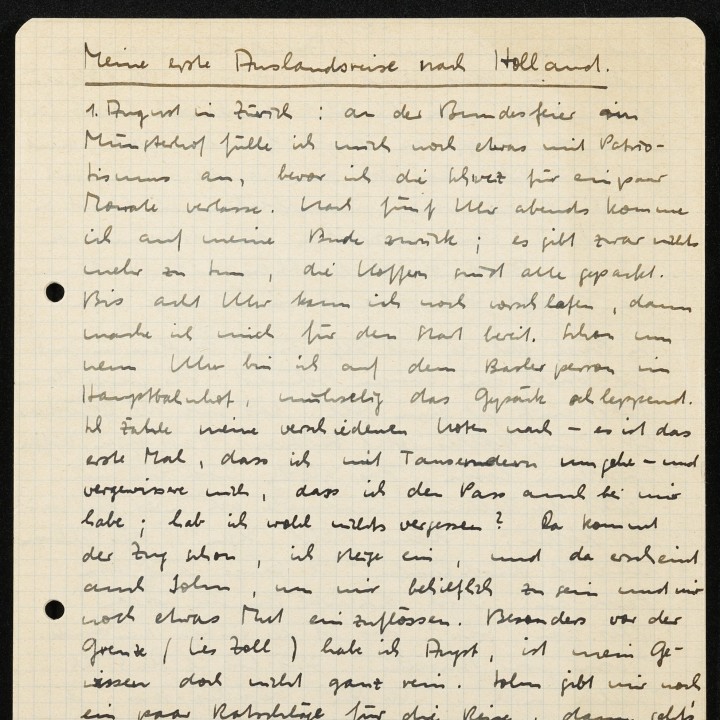 Meine erste Auslandsreise nach Holland.
1. August in Zürich : an der Bundesfeier am
Münsterhof fülle ich mich noch etwas mit Patrio-
tismus an, bevor ich die Schweiz für ein paar
Monate verlasse. Nach fünf Uhr abends komme
ich auf meine Bude zurück ; es gibt zwar nichts
mehr zu tun , die Koffern sind alle gepackt.
Bis acht Uhr kann ich noch vorschlafen , dann
mache ich mich für den Start bereit. Schon um
neun Uhr bin ich auf dem Basler perron im
Hauptbahnhof, mühselig das Gepäck schleppend.
Ich zähle meine verschiedenen Noten nach – es ist das
erste Mal, dass ich mit Tausendern umgehe – und
vergewissere mich, dass ich den Pass auch bei mir
habe ; hab ich wohl nichts vergessen ? Da kommt
der Zug schon , ich steige ein , und da erscheint
auch John , um mir behilflich zu sein und mir
noch etwas Mut einzuflössen. Besonders vor der
Grenze ( lies Zoll ) habe ich Angst, ist mein Ge-
wissen doch nicht ganz rein. John gibt mir noch
ein paar Ratschläge für die Reise, dann geht's